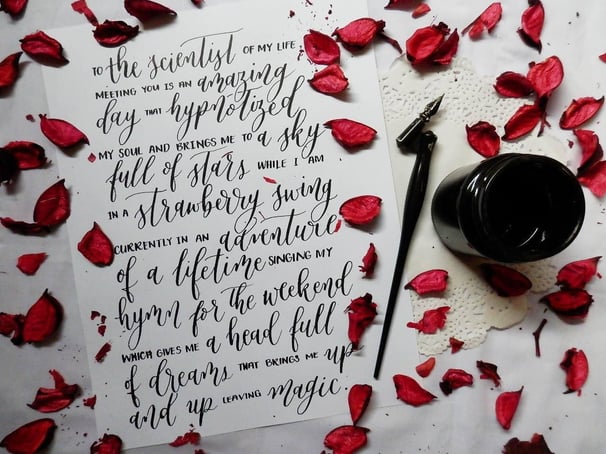 TO the scientist OF MY LIFE
MEETING YOU IS AN amazing
day THAT hypnotized
MY SOUL AND BRINGS ME TO a sky
full of stars WHILE I AM
IN A strawberry swing
CURRENTLY IN AN adventure
of a lifetime SINGING MY
hymn for the weekend
WHICH GIVES ME a head full
of dreams THAT BRINGS ME up
and up LEAVING magic.